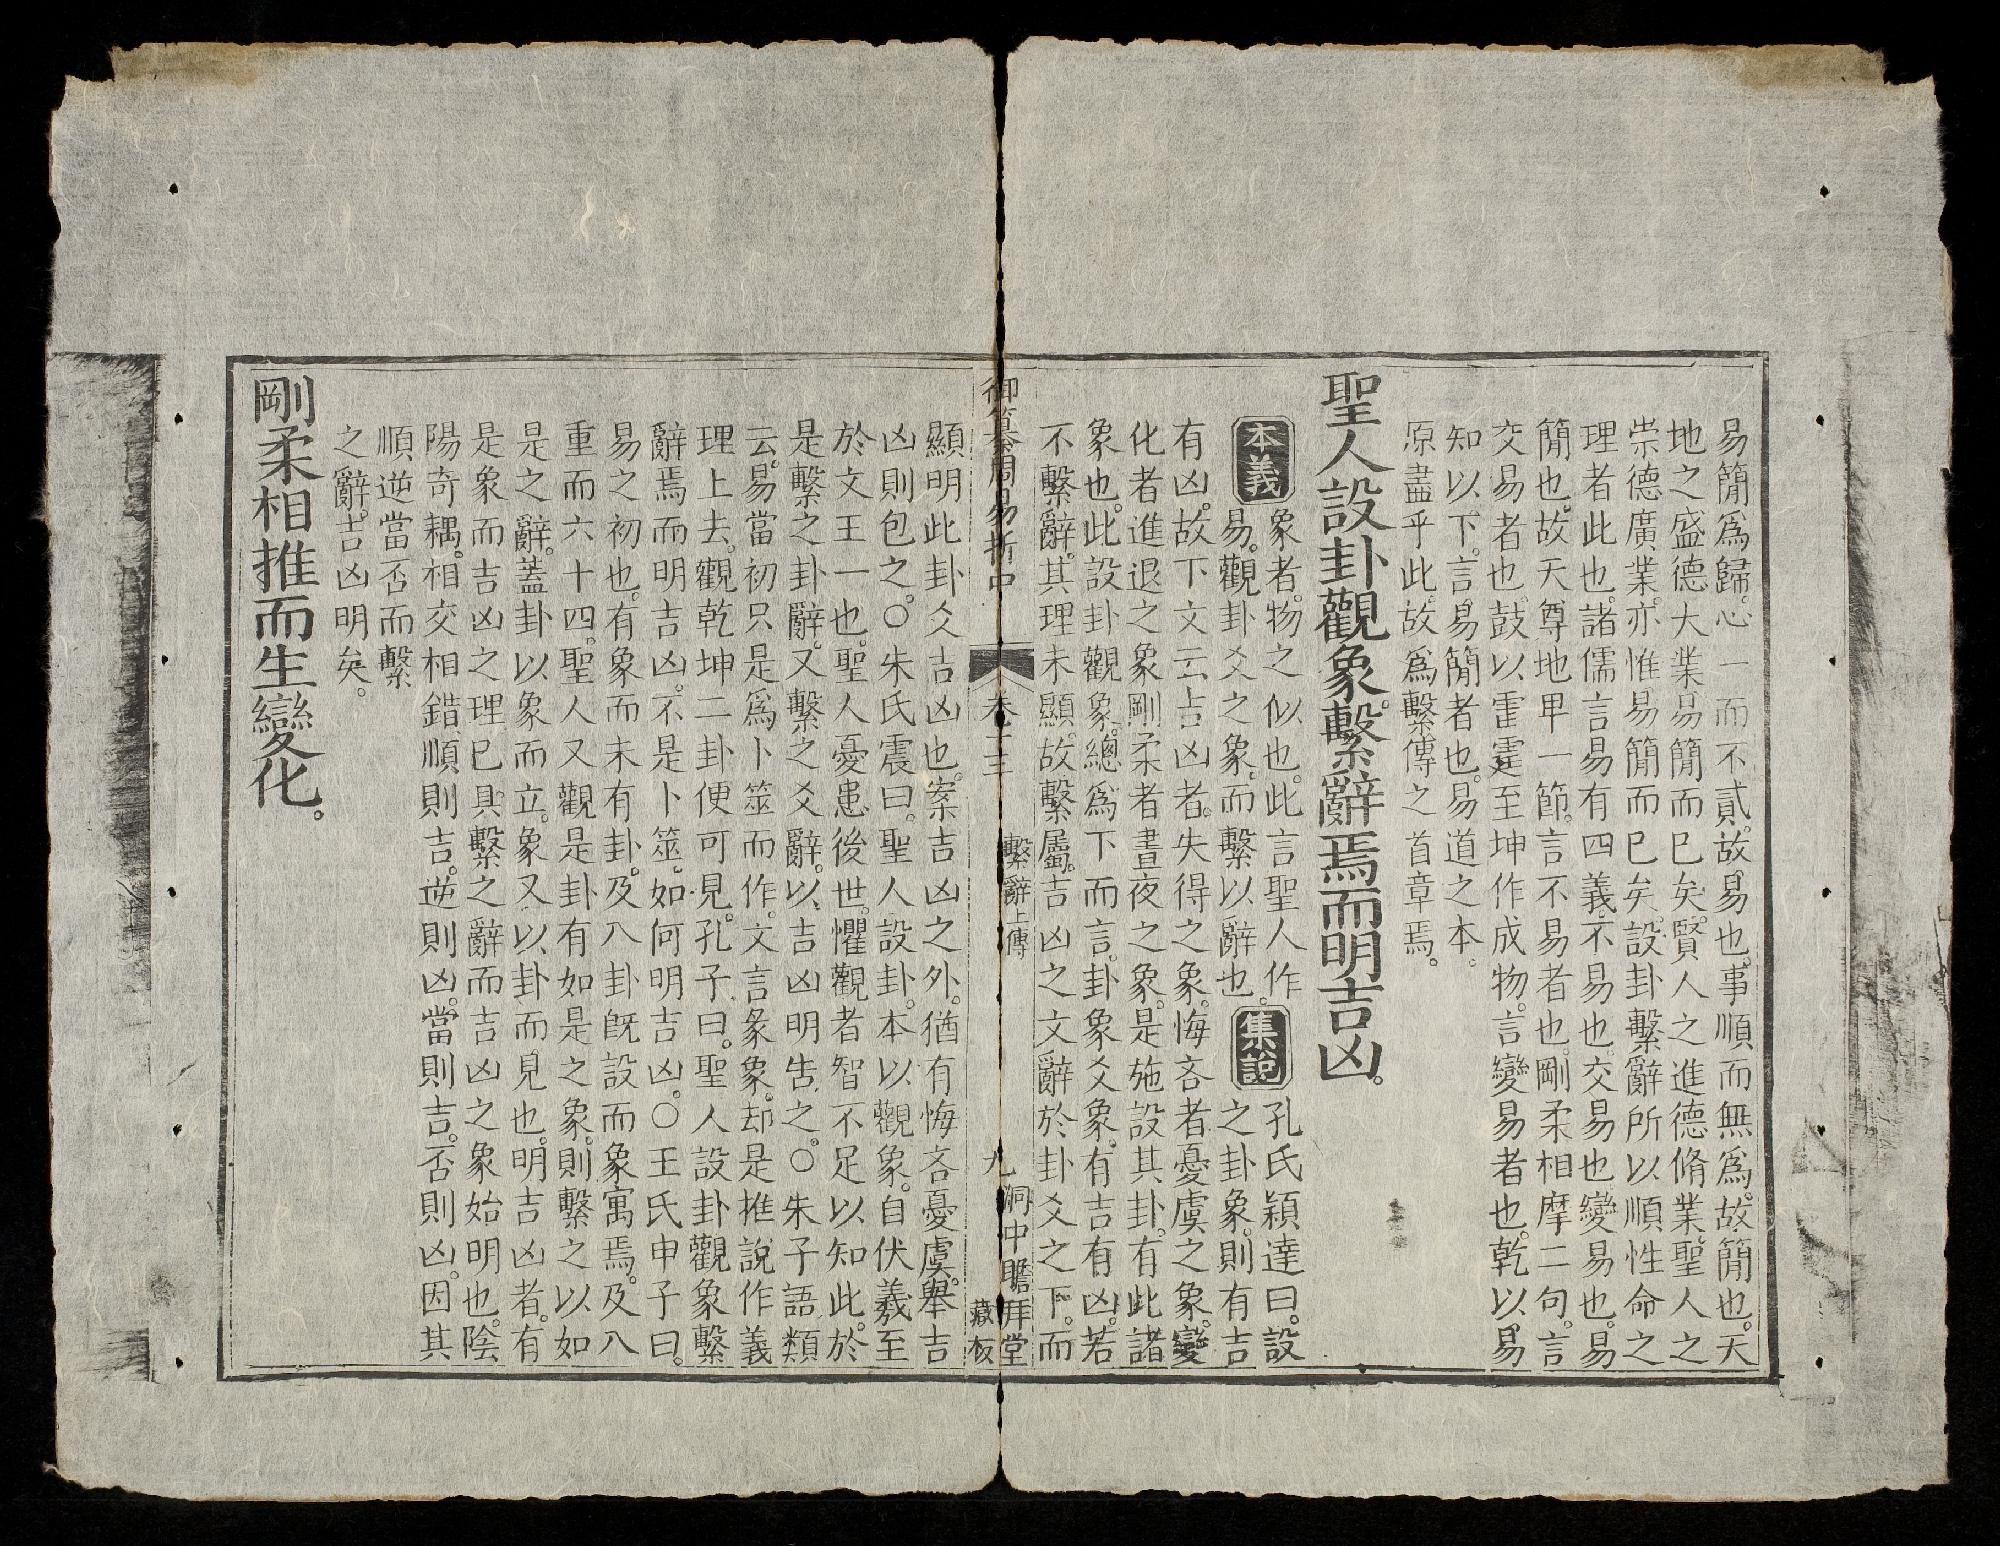 易簡爲歸。心一而不貳。故易也。事順而無爲。故簡也。天
地之盛德大業。易簡而已矣。賢人之進德脩業。聖人之
崇德廣業。亦惟易簡而已矣。設卦繫辭所以順性命之
理者此也。諸儒言易有四義。不易也。交易也。變易也。易
簡也。故天尊地卑一節。言不易者也。剛柔相摩二句。言
交易者也。鼓以雷霆至坤作成物。言變易者也。乾以易
知以下。言易簡者也。易道之本
原盡乎此。故爲繫傳之首章焉。
聖人設卦觀象。繫辭焉而明吉凶。
本義
象者。物之似也。此言聖人作
易。觀卦爻之象。而繫以辭也。
集說
孔氏穎達曰。設
之卦象。則有吉
有凶。故下文云吉凶者。失得之象。悔吝者憂虞之象。變
化者進退之象剛柔者晝夜之象。是施設其卦。有此諸
象也。此設卦觀象。總爲下而言。卦象爻象。有吉有凶。若
不繫辭。其理未顯。故繫屬。吉凶之文辭於卦爻之下。而
御纂周易折中
卷十三
繫辭上傳
九
洞中瞻拜堂
藏板
顯明此卦爻吉凶也。案吉凶之外。猶有悔吝憂虞。舉吉
凶則包之。○朱氏震曰。聖人設卦。本以觀象。自伏羲至
於文王一也。聖人憂患後世。懼觀者智不足以知此。於
是繫之卦辭。又繫之爻辭。以吉凶明告之。○朱子語類
云。易當初只是爲卜筮而作。文言彖象。却是推說作義
理上去。觀乾坤二卦便可見。孔子曰。聖人設卦觀象繫
辭焉而明吉凶。不是卜筮。如何明吉凶。○王氏申子曰。
易之初也。有象而未有卦。及八卦旣設而象寓焉。及八
重而六十四。聖人又觀是卦有如是之象。則繫之以如
是之辭。蓋卦以象而立。象又以卦而見也。明吉凶者。有
是象而吉凶之理已具。繫之辭而吉凶之象始明也。陰
陽奇耦。相交相錯。順則吉。逆則凶。當則吉。否則凶。因其
順逆當否而繫
之辭。吉凶明矣。
剛柔相推而生變化。